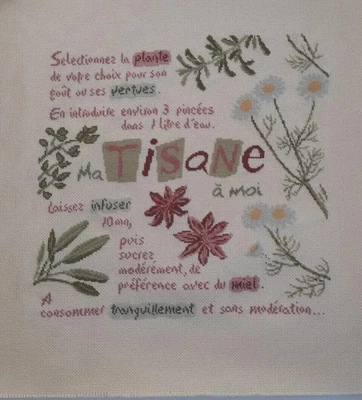 Sélectionnez la plante
de votre choix pour son
goût ou ses vertues.
En introduire environ 3 pincées
dans 1 litre d'eau.
Ma TISaNe
à moi
Laissez infuser
10mn,
puis
sucrez
modérément, de
préférence avec du miel.
A
consommer tranquillement et sans modération...